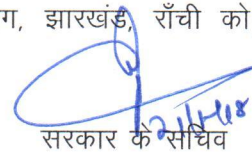 ग, झारखंड, राँची को
सरकार के सचिव